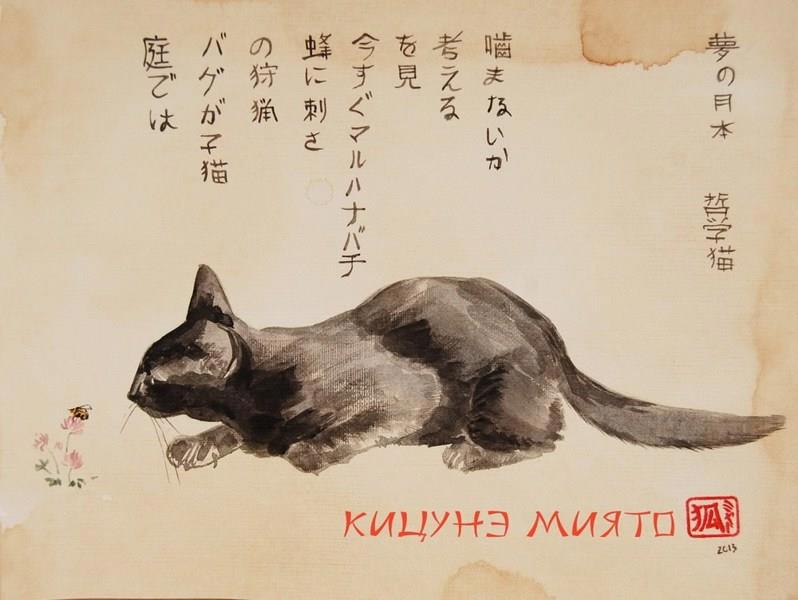 夢の月本 哲学猫
噛まないか
考える
を見
今すぐマルハナバチ
蜂に刺さ
の狩猟
バグが子猫
庭では
КИЦУНЭ МИЯТО
狐
2013